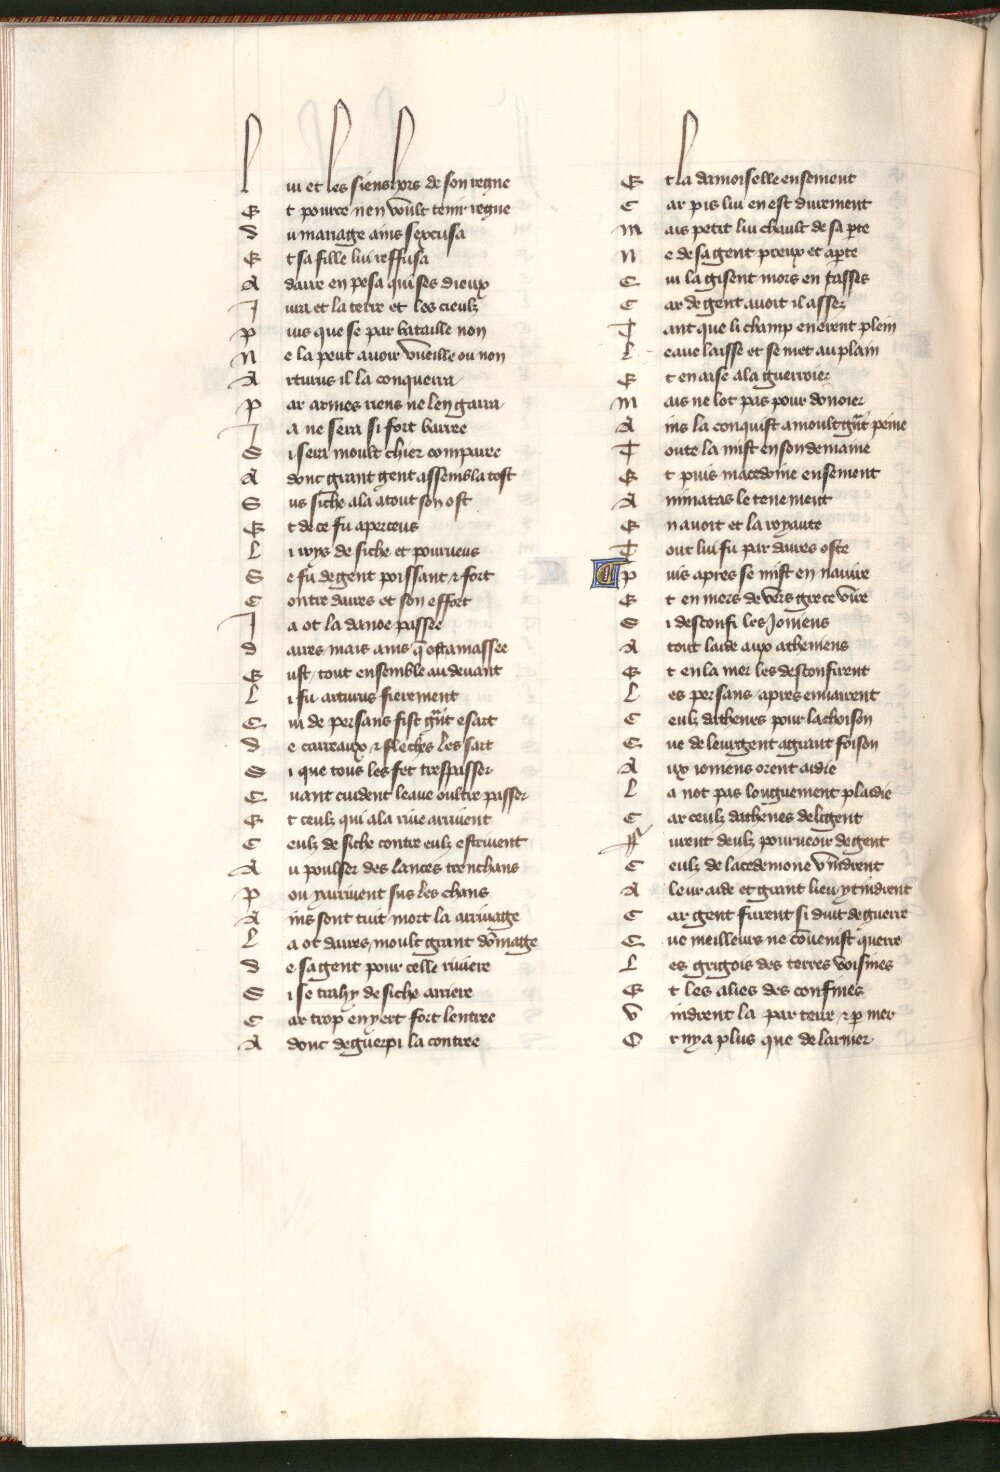 L ui et les siens hors de son regne
E t pource nen voult tenir regne
D u mariage ains sexcusa
E t sa fille lui reffusa
A daire en pesa qui ses dieux
J ura et la terre et les cieulx
P uis que se par bataille non
N e la peut auoir vueille ou non
A rturus il la conquerra
P ar armes riens ne len garra
J a ne sera si fort barree
S i sera moult chier comparee
A donc grant gent assembla tost
S us siche ala atout son ost
E t de ce fu aperceus
L i roys de siche et pourueus
S e fu de gent poissant & fort
C ontre daires et son effort
J a ot la danoe passee
D aires mais ains q̄ ost amassee
E ust tout ensemble au deuant
L i fu arturus fierement
C ui de persans fist gñt essart
D e carreaux & fleches les sart
S i que tous les fet trespasser
C uant cuident leaue oultre passer
E t ceulz qui a la riue arriuent
C eulz de siche contre eulz estriuent
A u poulser des lances trenchans
P ou y arriuent sus les chans
A ins sont tuit mort la arriuage
L a ot daires moult grant dōmage
D e sa gent pour celle riuiere
S i se trahy de siche arriere
C ar trop en yert fort lentree
A donc deguerpi la contree
E t la damoiselle ensement
C ar pis lui en est durement
M ais petit lui chault de sa perte
N e de sa gent preux et aperte
C ui la gisent mors en tasses
C ar de gent auoit il assez
T ant que li champ en erent plein
L eaue laisse et se met au plain
E t en aise a la guerroier
M ais ne lot pas pour donoier
A ins la conquist a moult gñt peine
T oute la mist en son demaine
E t puis macedoine ensement
A minatas le tenement
E n auoit et la royaute
T out lui fu par daires oste
P uis apres se mist en nauire
E t en mers de vers grece vire
S i desconfi les Joniens
A tout laide aux atheniens
E t en la mer les desconfirent
L es persans apres enuairent
C eulz dathenes pour lachoison
C ue de leur gent a grant foison
A ux ioniens orent aidie
L a not pas longuement plaidie
C ar ceulz dathenes de ligent
F urent deulz pourueoir de gent
C eulz de lacedemone vindrent
A leur aide et grant lieu y tindrent
C ar gent furent si duit de guerre
C ue meilleurs ne cōuenist querre
L es grigois des terres voisines
E t les alies des confines
V indrent la par terre & p̱ mer
O r ny a plus que de larmer